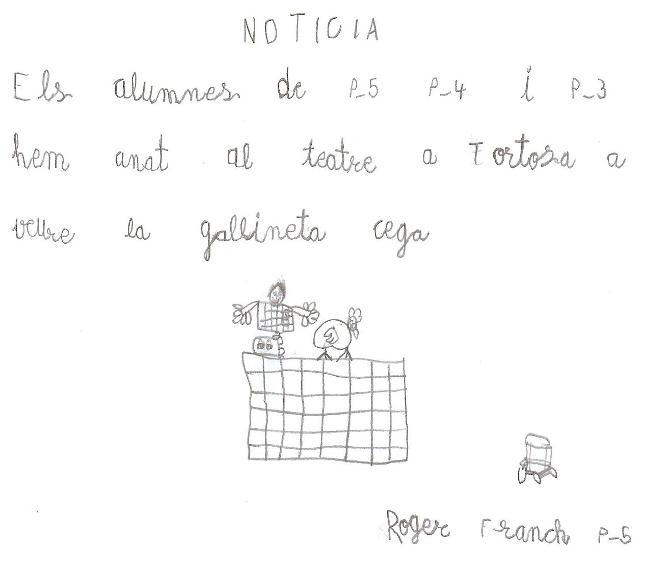 NOTICIA
Els alumnes de P-5 P-4 i P-3
hem anat al teatre a Tortosa a
veure la gallineta cega
Roger Franch P-5